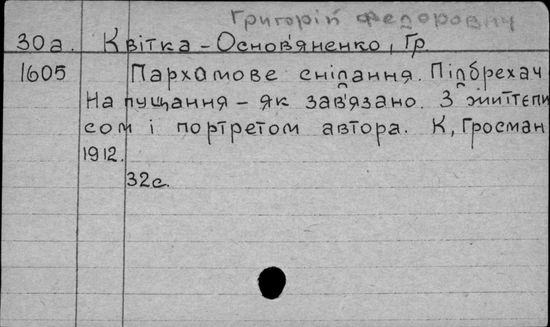 Григорій Федорович
30а. Квітка-Основ'яненко, Гр.
1605 Пархомове снідання. Підбрехач
На пущання - як зав'язано. З життєпи
сом і портретом автора. К, Гросман
1912.
32с.